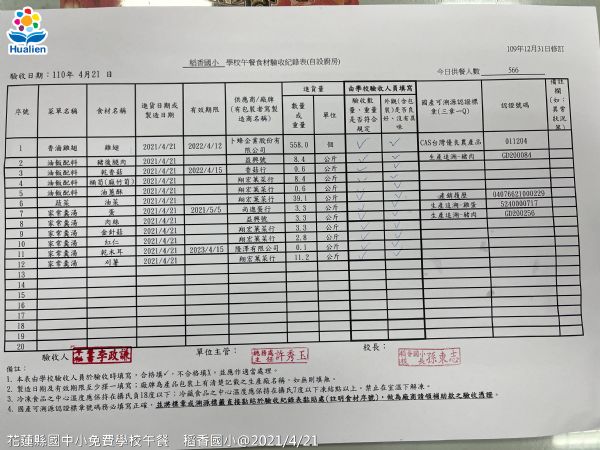 Hualien
109年12月31日修訂
稻香國小 學校午餐食材驗收紀錄表(自設廚房)
驗收日期:110年 4月21 日 今日供餐人數 566
序號 菜單名稱 食材名稱 進貨日期或製造日期 有效期限 供應商/廠牌(有包裝者寫製造商名稱) 進貨量 數量或重量 單位 由學校驗收人員填寫 驗收數量、重量是否符合規定 外觀(含包裝)是否良好、沒有異味 國產可溯源認證標章(三章一Q) 認證號碼 備註欄(如:異常狀況)
1 香滷雞翅 雞翅 2021/4/21 2022/4/12 卜蜂企業股份有限公司 558.0 個 CAS台灣優良農產品 011204
2 油飯配料 豬後腿肉 2021/4/21 益興號 8.4 公斤 生產追溯-豬肉 GD200084
3 油飯配料 乾香菇 2021/4/21 2022/4/15 香菇行 0.6 公斤
4 油飯配料 桶筍(麻竹筍) 2021/4/21 翔宏菜菜行 8.4 公斤
5 油飯配料 油蔥酥 2021/4/21 翔宏菜菜行 0.6 公斤
6 蔬菜 油菜 2021/4/21 翔宏菜菜行 39.1 公斤 產銷履歷 04076621000229
7 家常羹湯 蛋 2021/4/21 2021/5/5 尚進蛋行 3.3 公斤 生產追溯-雞蛋 5240000717
8 家常羹湯 肉絲 2021/4/21 益興號 3.3 公斤 生產追溯-豬肉 GD200256
9 家常羹湯 金針菇 2021/4/21 翔宏菜菜行 3.3 公斤
10 家常羹湯 紅仁 2021/4/21 翔宏菜菜行 2.8 公斤
11 家常羹湯 乾木耳 2021/4/21 2023/4/15 隆澤有限公司 0.1 公斤
12 家常羹湯 刈薯 2021/4/21 翔宏菜菜行 11.2 公斤
13
14
15
16
17
18
19
20
驗收人 李政謙 單位主管: 總務處主任 許秀玉 校長: 稻香國小校長 孫東志
備註:
1. 本表由學校驗收人員於驗收時填寫,合格填✓,不合格填X,並應作適當處理。
2. 製造日期及有效期限至少擇一填寫;廠牌為產品包裝上有清楚記載之生產廠名稱,如無則填無。
3. 冷凍食品之中心溫度應保持在攝氏負18度以下;冷藏食品之中心溫度應保持在攝氏7度以下凍結點以上,禁止在室溫下解凍。
4. 國產可溯源認證標章號碼務必填寫正確,並將標章或溯源標籤直接黏貼於驗收紀錄表黏貼處(註明食材序號),做為廠商請領補助款之驗收憑證。
花蓮縣國中小免費學校午餐 稻香國小@2021/4/21